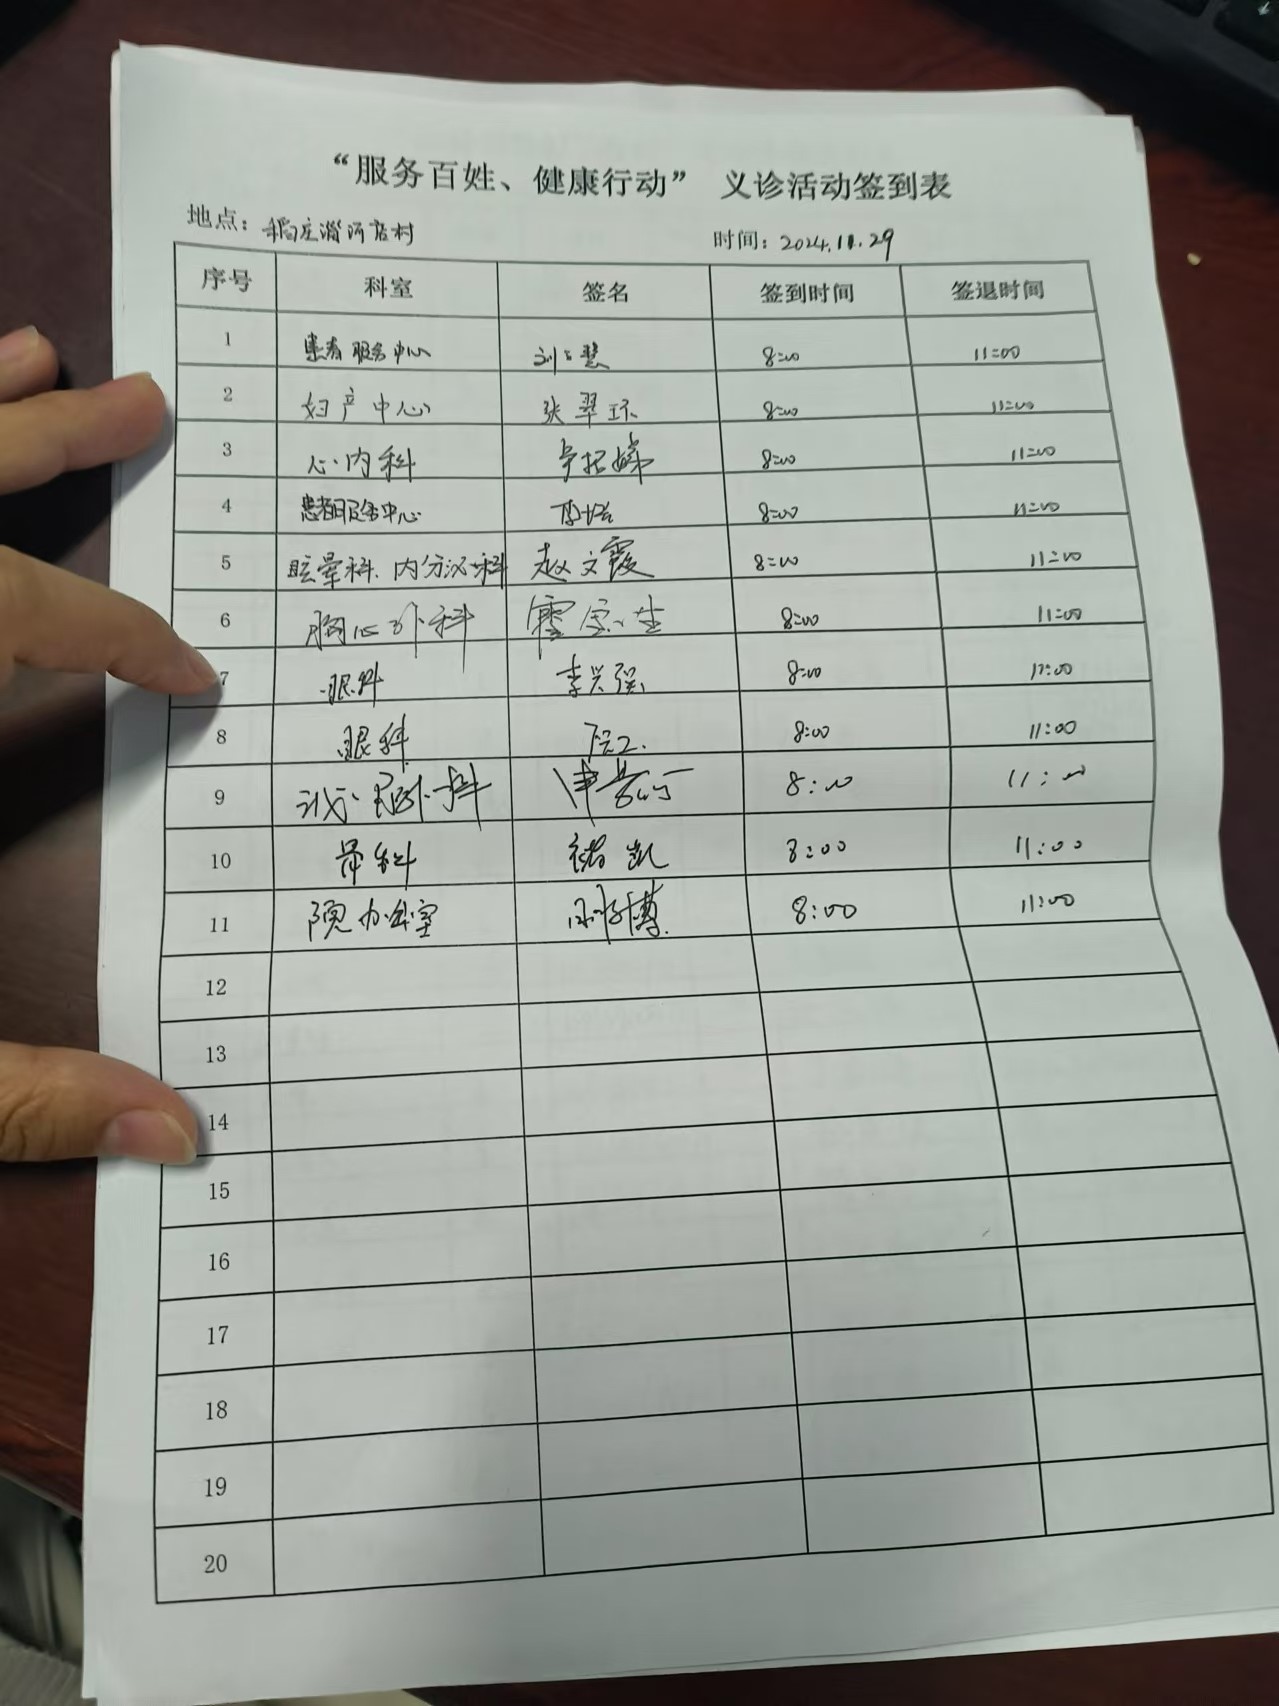 “服务百姓、健康行动” 义诊活动签到表
地点：稻庄淄河店村 时间：2024.11.29
序号 科室 签名 签到时间 签退时间
1 患者服务中心 8:00 11:00
2 妇产中心 张翠环 8:00 11:00
3 心内科 8:00 11:00
4 患者服务中心 8:00 11:00
5 眩晕科、内分泌科 赵文霞 8:00 11:00
6 胸心外科 8:00 11:00
7 眼科 李兴强 8:00 11:00
8 眼科 8:00 11:00
9 8:00 11:00
10 骨科 褚凯 8:00 11:00
11 院办公室 8:00 11:00
12
13
14
15
16
17
18
19
20